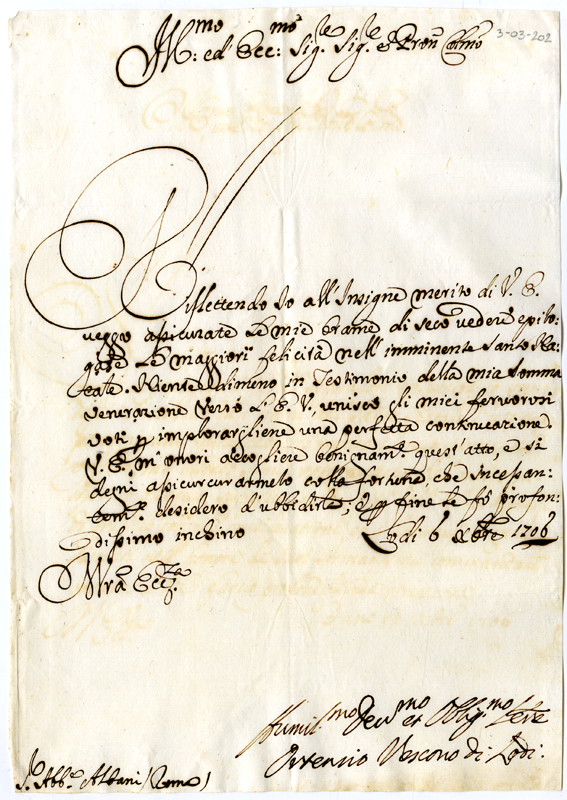 3-03-202
Ill:mo ed Ecc:mo Sig:re Sig:re e Pron Colmo
Riflettendo Io all'Insigne merito di V. E.
veggo assicurate le mie brame di seco vedere epilo:
gate le maggiori felicità nell'imminente Santo Na:
tale. Nientedimeno in Testimonio della mia somma
venerazione verso l'E. V., unisco gli miei fervorosi
voti p implorargliene una perfetta continuazione.
V. E. m'onori accogliere benignam.te quest'atto, e si
degni assicurarmelo colla fortuna, che incessan:
tem.te desidero d'ubbidirla; e p fine le fò profon:
dissimo inchino Lodi 6 Xbre 1706
Vra Ecc:za
Humil.mo Dev.mo et Oblig.mo Serv.re
Ortensio Vescovo di Lodi.
S.r Abb.e Albani (Roma)